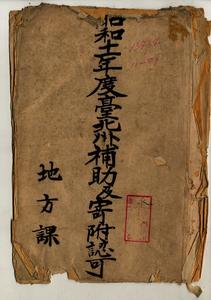 昭和十一年度臺北州補助及寄附認可
地方課